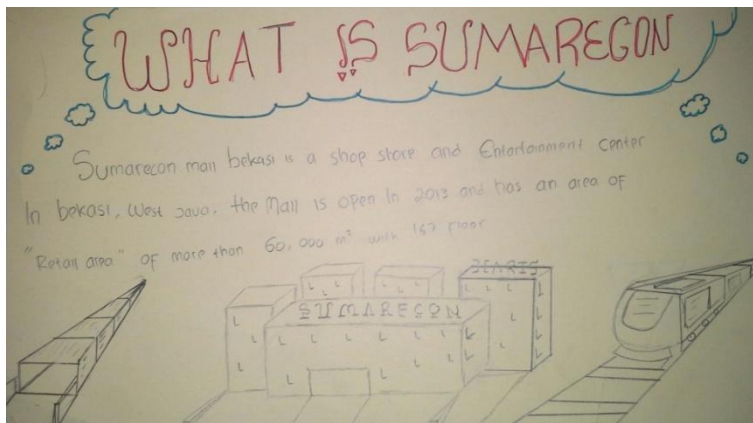 WHAT IS SUMAREGON
Sumarecon mall bekasi is a shop store and Entertainment center
In bekasi, West Java, the Mall is open In 2013 and has an area of
"Retail area" of more than 60.000 m² with floor
SUMAREGON